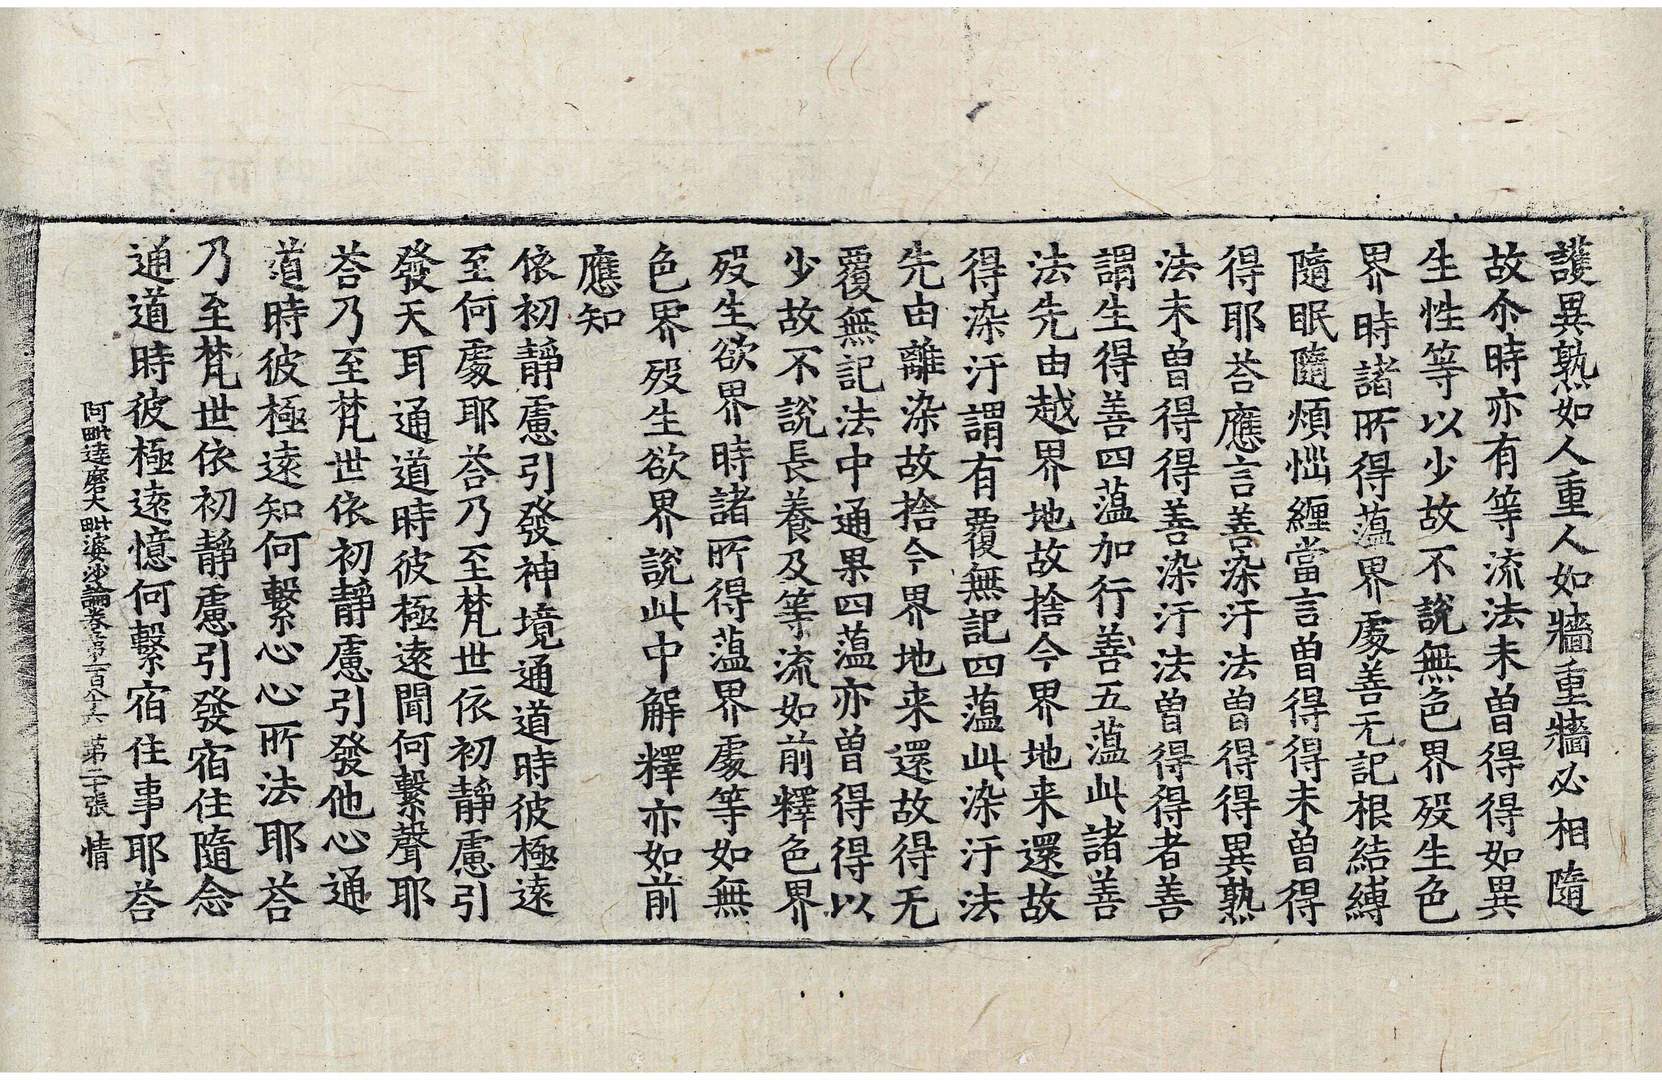 護異熟如人重人如牆重牆必相隨
故尒時亦有等流法未曽得得如異
生性等以少故不說無色界歿生色
界時諸所得蕰界處善无記根結縛
隨眠隨煩惱纏當言曽得得未曽得
得耶荅應言善染汙法曽得得異熟
法未曽得得善染汙法曽得得者善
謂生得善四蕰加行善五蕰此諸善
法先由越界地故捨今界地来還故
得染汙謂有覆無記四蕰此染汙法
先由離染故捨今界地来還故得无
覆無記法中通果四蕰亦曽得得以
少故不說長養及等流如前釋色界
歿生欲界時諸所得蕰界處等如無
色界歿生欲界說此中解釋亦如前
應知
依初靜慮引發神境通道時彼極遠
至何處耶荅乃至梵世依初靜慮引
發天耳通道時彼極遠聞何繫聲耶
荅乃至梵世依初靜慮引發他心通
道時彼極遠知何繫心心所法耶荅
乃至梵世依初靜慮引發宿住隨念
通道時彼極遠憶何繫宿住事耶荅
阿毗達磨大毗婆沙論卷第一百八十六 苐二十張 情